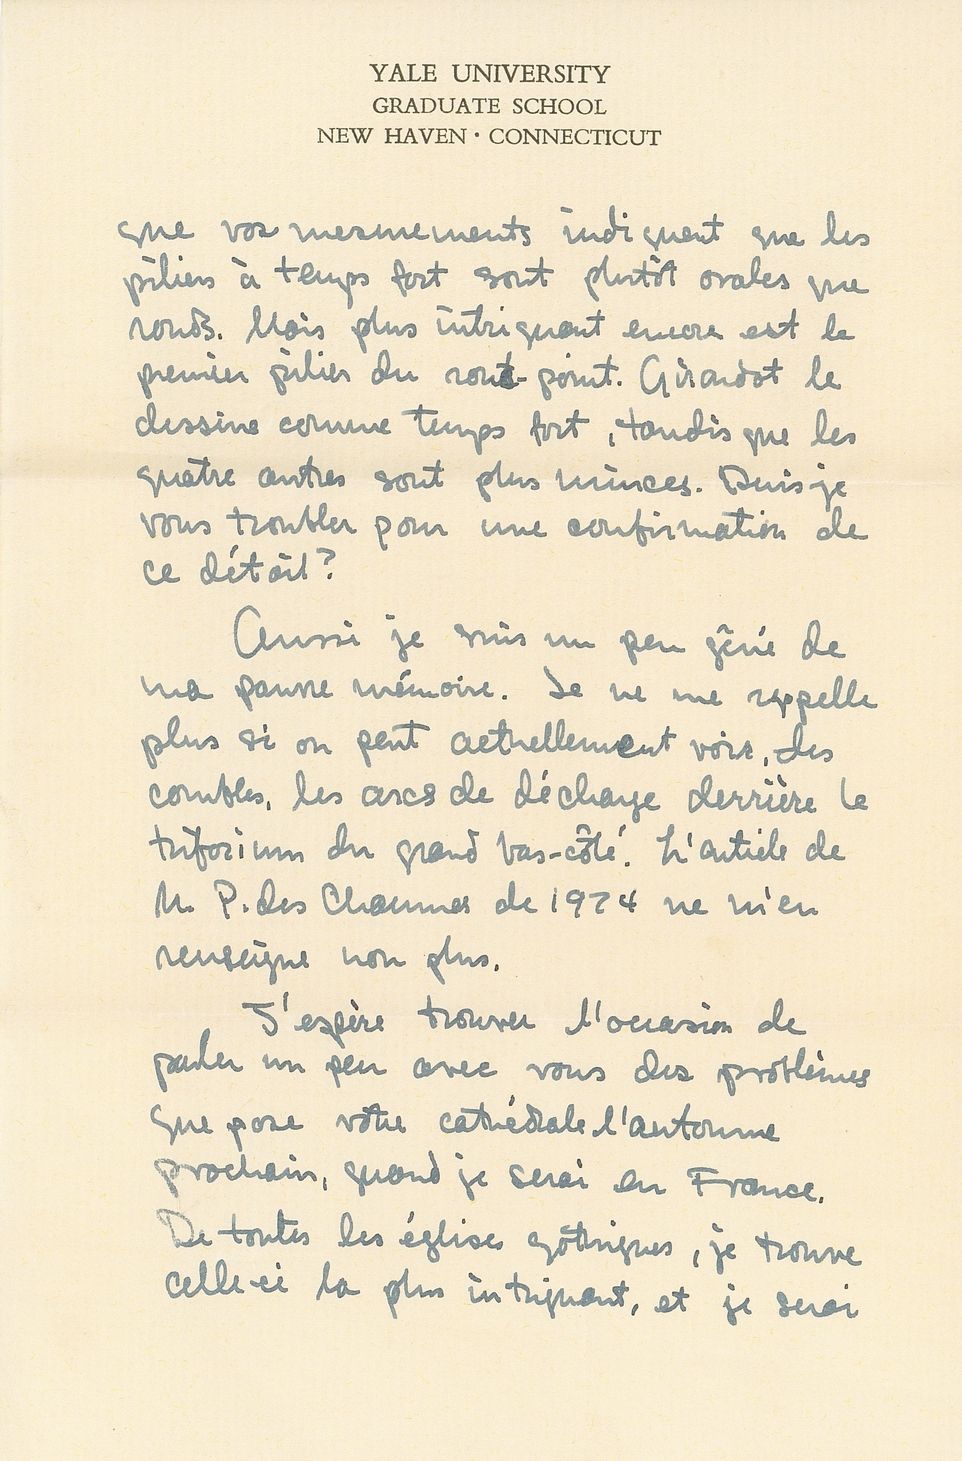 YALE UNIVERSITY
GRADUATE SCHOOL
NEW HAVEN · CONNECTICUT
que vos mesurements indiquent que les
piliers à temps fort sont plutôt ovales que
ronds. Mais plus intriguant encore est le
premier pilier du rond-point. Girardot le
dessine comme temps fort, tandis que les
quatre autres sont plus minces. Puis-je
vous troubler pour une confirmation de
ce détail?
Aussi je suis un peu gêné de
ma pauvre mémoire. Je ne me rappelle
plus si on peut actuellement voir, des
combles, les arcs de décharge derrière le
triforium du grand bas-côté. L'article de
M. P. des Chaumes de 1974 ne m'en
renseigne non plus.
J'espère trouver l'occasion de
parler un peu avec vous des problèmes
que pose vôtre cathédrale l'automne
prochain, quand je serai en France.
De toutes les églises gothiques, je trouve
celle-ci la plus intriguant, et je serai